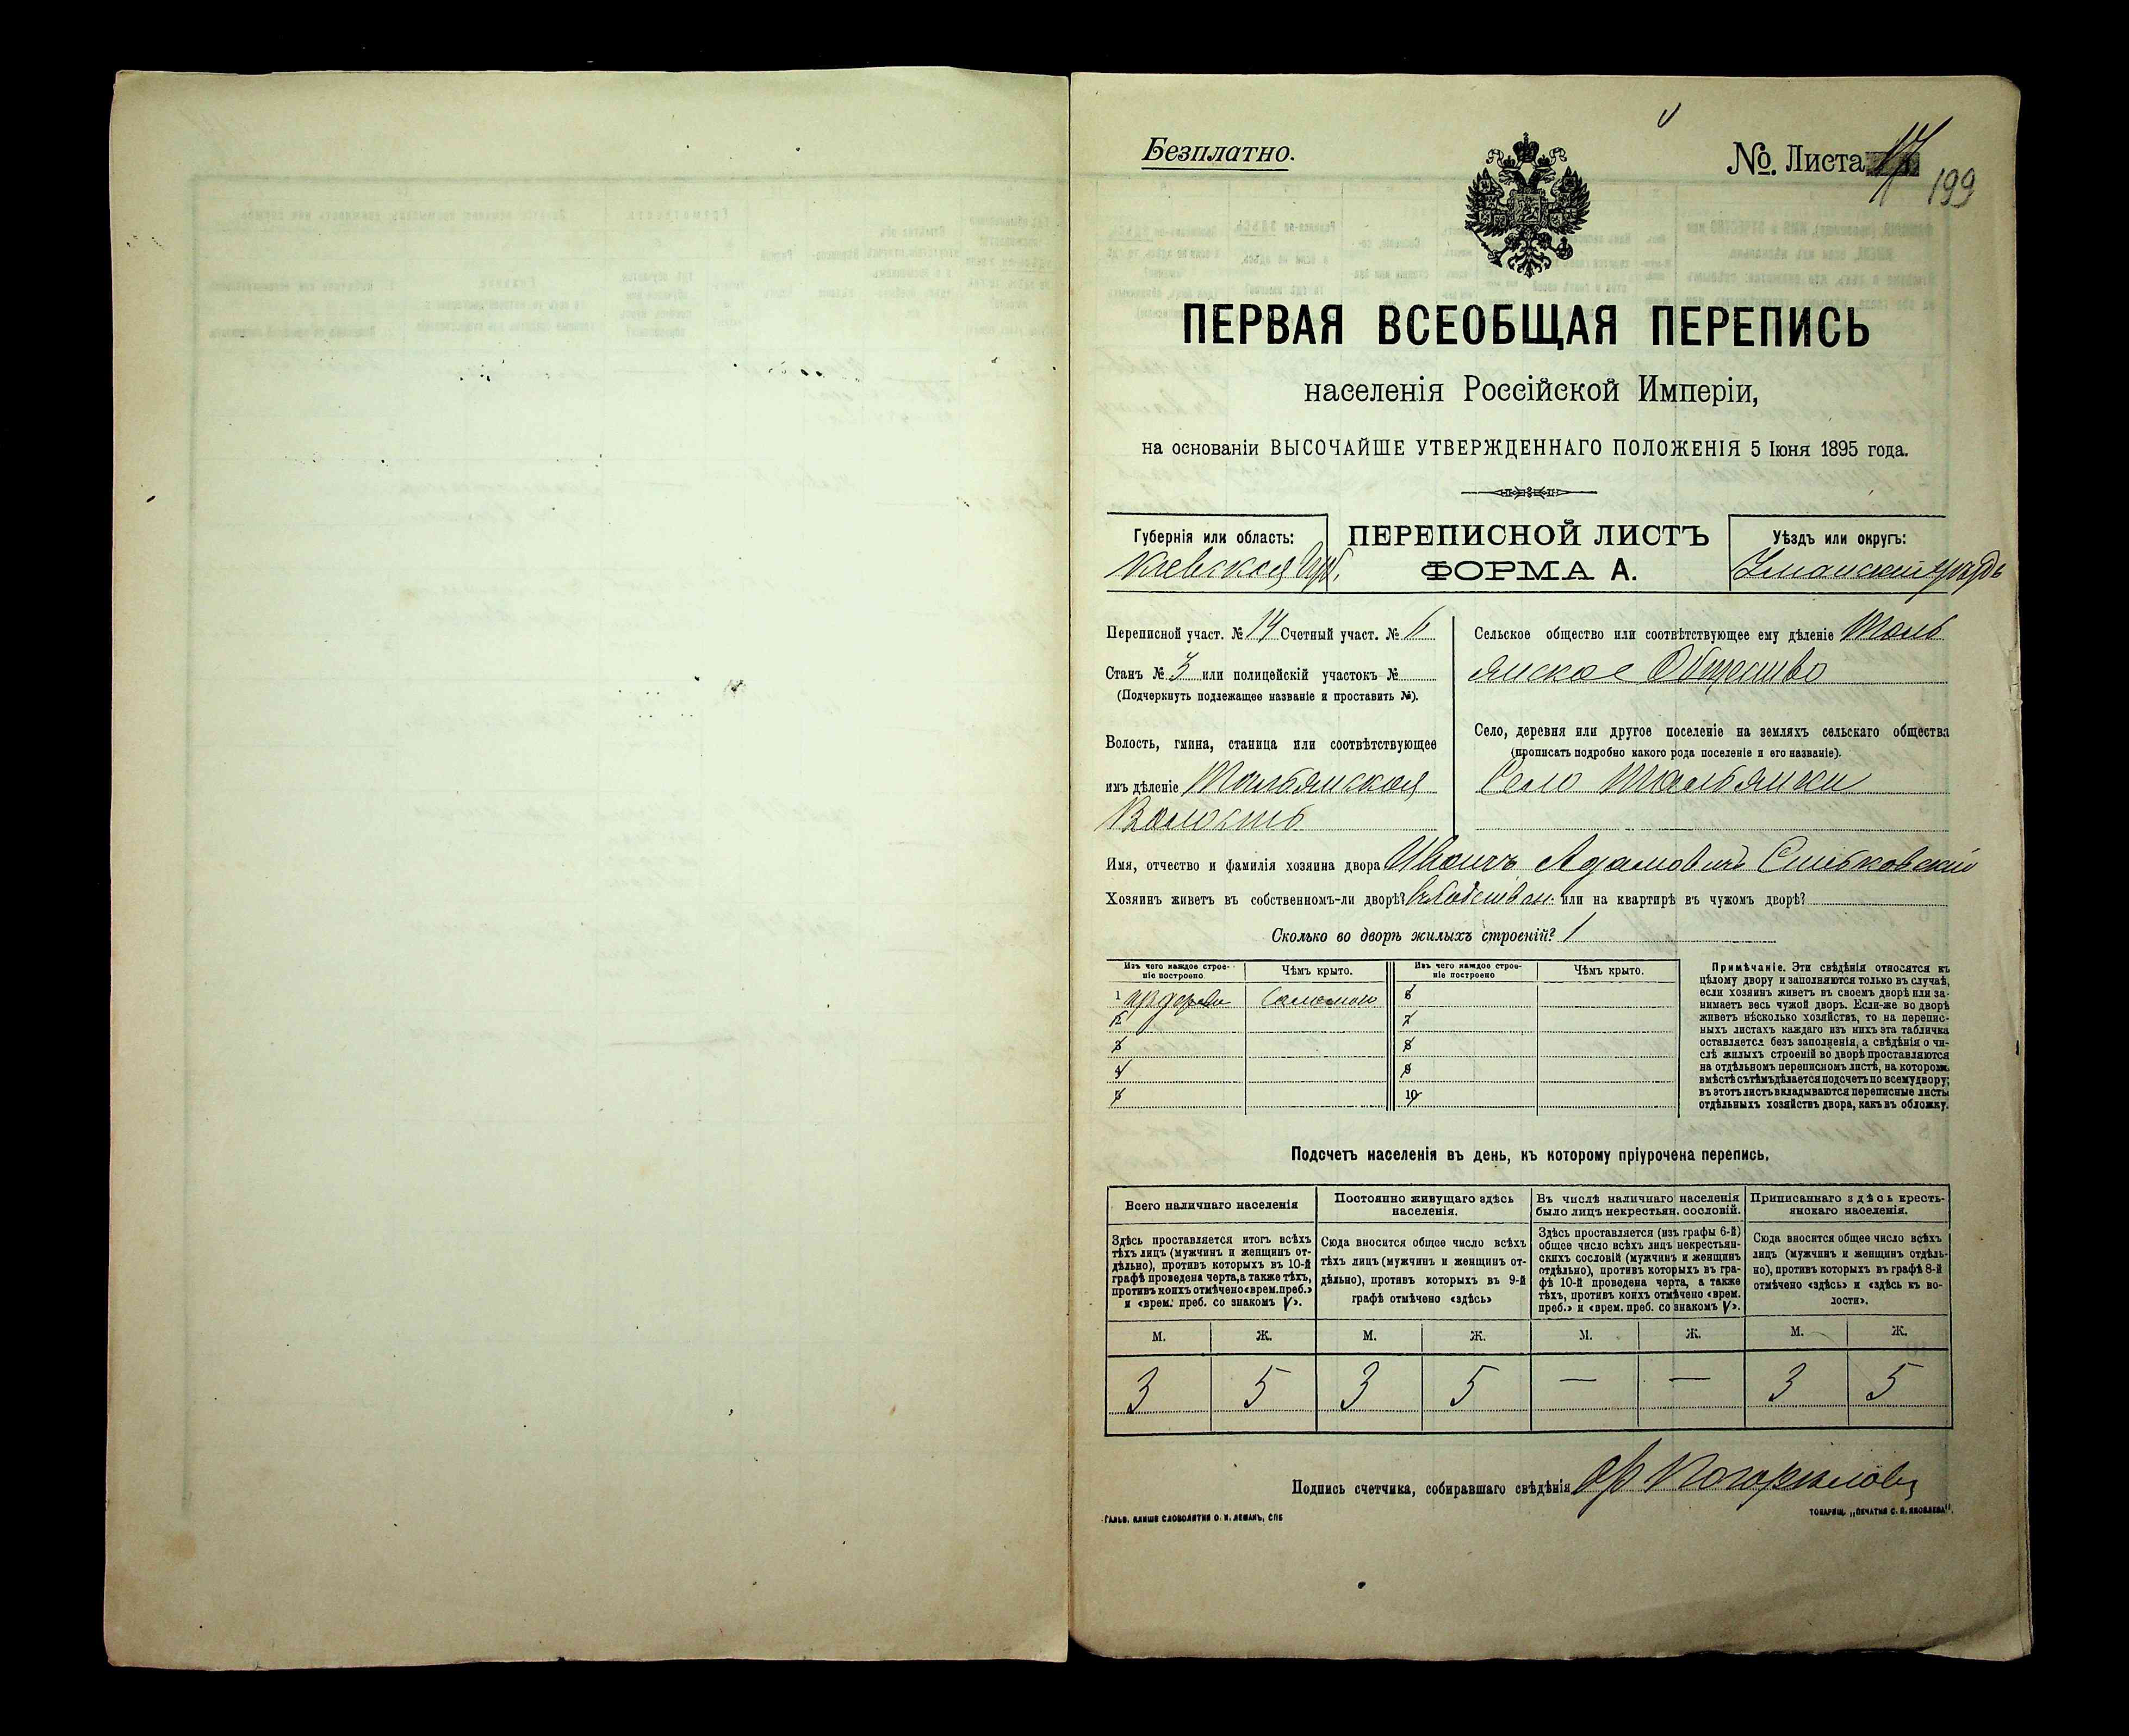 Безплатно.
No. Листа 17
199
ПЕРВАЯ ВСЕОБЩАЯ ПЕРЕПИСЬ
населенія Россійской Имперіи,
на основаніи ВЫСОЧАЙШЕ УТВЕРЖДЕННАГО ПОЛОЖЕНІЯ 5 Іюня 1895 года.
Губернія или область:
Кіевская губ.
ПЕРЕПИСНОЙ ЛИСТЪ
ФОРМА А.
Уѣздъ или округъ:
Уманскій уѣздъ
Переписной участ. № 14 Счетный участ. № 11
Станъ № 3 или полицейскій участокъ №
(Подчеркнуть подлежащее названіе и проставить №).
Волость, гмина, станица или соотвѣтствующее
имъ дѣленіе Тальянская
Волость
Сельское общество или соотвѣтствующее ему дѣленіе Таль
янское Общество
Село, деревня или другое поселеніе на земляхъ сельскаго общества
(прописать подробно какого рода поселеніе и его названіе).
Село Тальянки
Имя, отчество и фамилія хозяина двора Иванъ Адамовичъ
Хозяинъ живетъ въ собственномъ-ли дворѣ? въ собствен. или на квартирѣ въ чужомъ дворѣ?
Сколько во дворѣ жилыхъ строеній? 1
Изъ чего каждое строе-
ніе построено
Чѣмъ крыто.
Изъ чего каждое строе-
ніе построено
Чѣмъ крыто.
1 Соломою 6
2 7
3 8
4 9
5 10
Примѣчаніе. Эти свѣдѣнія относятся къ
цѣлому двору и заполняются только въ случаѣ,
если хозяинъ живетъ въ своемъ дворѣ или за-
нимаетъ весь чужой дворъ. Если-же во дворѣ
живетъ нѣсколько хозяйствъ, то на перепис-
ныхъ листахъ каждаго изъ нихъ эта табличка
оставляется безъ заполненія, а свѣдѣнія о чи-
слѣ жилыхъ строеній во дворѣ проставляются
на отдѣльномъ переписномъ листѣ, на которомъ
вмѣстѣ съ тѣмъ дѣлается подсчетъ по всему двору;
въ этотъ листъ вкладываются переписные листы
отдѣльныхъ хозяйствъ двора, какъ въ обложку.
Подсчетъ населенія въ день, къ которому пріурочена перепись.
Всего наличнаго населенія
Здѣсь проставляется итогъ всѣхъ
тѣхъ лицъ (мужчинъ и женщинъ от-
дѣльно), противъ которыхъ въ 10-й
графѣ проведена черта, а также тѣхъ,
противъ коихъ отмѣчено «врем. преб.»
и «врем. преб. со знакомъ V».
Постоянно живущаго здѣсь
населенія.
Сюда вносится общее число всѣхъ
тѣхъ лицъ (мужчинъ и женщинъ от-
дѣльно), противъ которыхъ въ 9-й
графѣ отмѣчено «здѣсь»
Въ числѣ наличнаго населенія
было лицъ некрестьян. сословій.
Здѣсь проставляется (изъ графы 6-й)
общее число всѣхъ лицъ некрестьян-
скихъ сословій (мужчинъ и женщинъ
отдѣльно), противъ которыхъ въ гра-
фѣ 10-й проведена черта, а также
тѣхъ, противъ коихъ отмѣчено «врем.
преб.» и «врем. преб. со знакомъ V».
Приписаннаго здѣсь кресть-
янскаго населенія.
Сюда вносится общее число всѣхъ
лицъ (мужчинъ и женщинъ отдѣль-
но), противъ которыхъ въ графѣ 8-й
отмѣчено «здѣсь» и «здѣсь къ во-
лости».
М. Ж. М. Ж. М. Ж. М. Ж.
3 5 3 5 — — 3 5
Подпись счетчика, собиравшаго свѣдѣнія
ГАЛЬВ. КЛИШЕ СЛОВОЛИТНИ О. И. ЛЕМАНЪ, СПБ
ТОВАРИЩ. „ПЕЧАТНЯ С. П. ЯКОВЛЕВА".